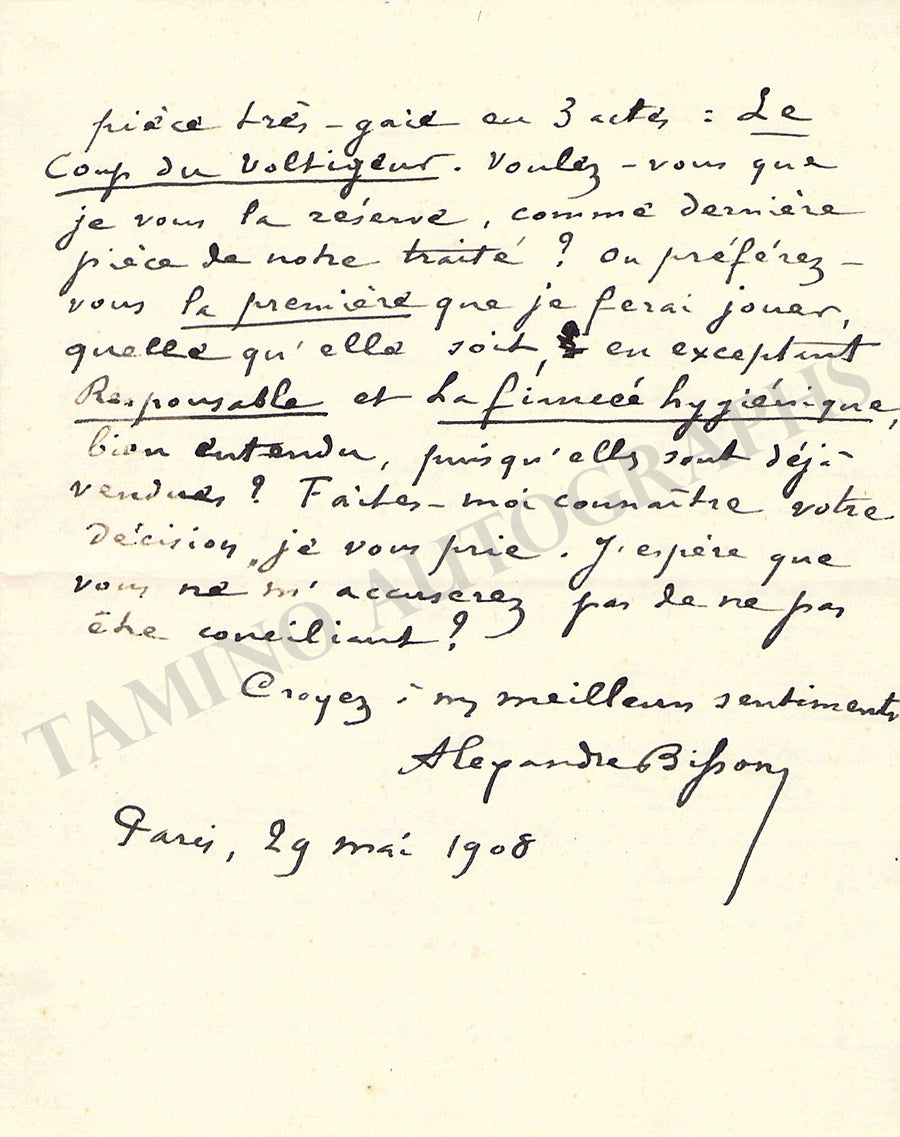 pièce très-gaie en 3 actes : Le
Coup du Voltigeur. Voulez-vous que
je vous la réserve, comme dernière
pièce de notre traité ? Ou préférez-
vous la première que je ferai jouer,
quelle qu'elle soit, en exceptant
Responsable et La fiancée hygiénique,
bien entendu, puisqu'elles sont déjà
vendues ? Faites-moi connaître votre
décision, je vous prie. J'espère que
vous ne m'accuserez pas de ne pas
être conciliant ?
Croyez à mes meilleurs sentiments
Alexandre Bisson
Paris, 29 mai 1908
TAMINO AUTOGRAPHS